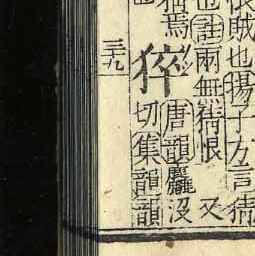 㹂賊也揚子方言猜
也註兩無猜恨　又
猝　唐韻麤沒
切集韻韻
三十九